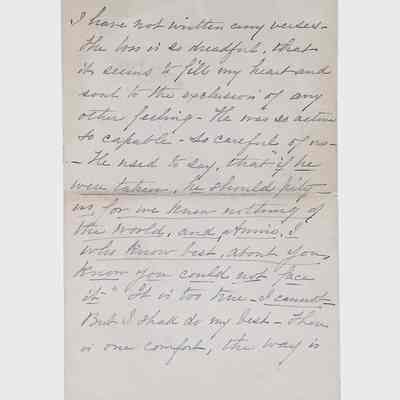 I have not written any verses -
the loss is so dreadful, that
it seems to fill my heart and
soul to the exclusion of any
other feeling - He was so active
so capable - so careful of us -
- He used to say, that "if he
were taken, he should pity
us, for we knew nothing of
the world, and, Annie, I
who know best, about you,
know you could not face
it" It is too true - I cannot
But I shall do my best - There
is one comfort, the way is